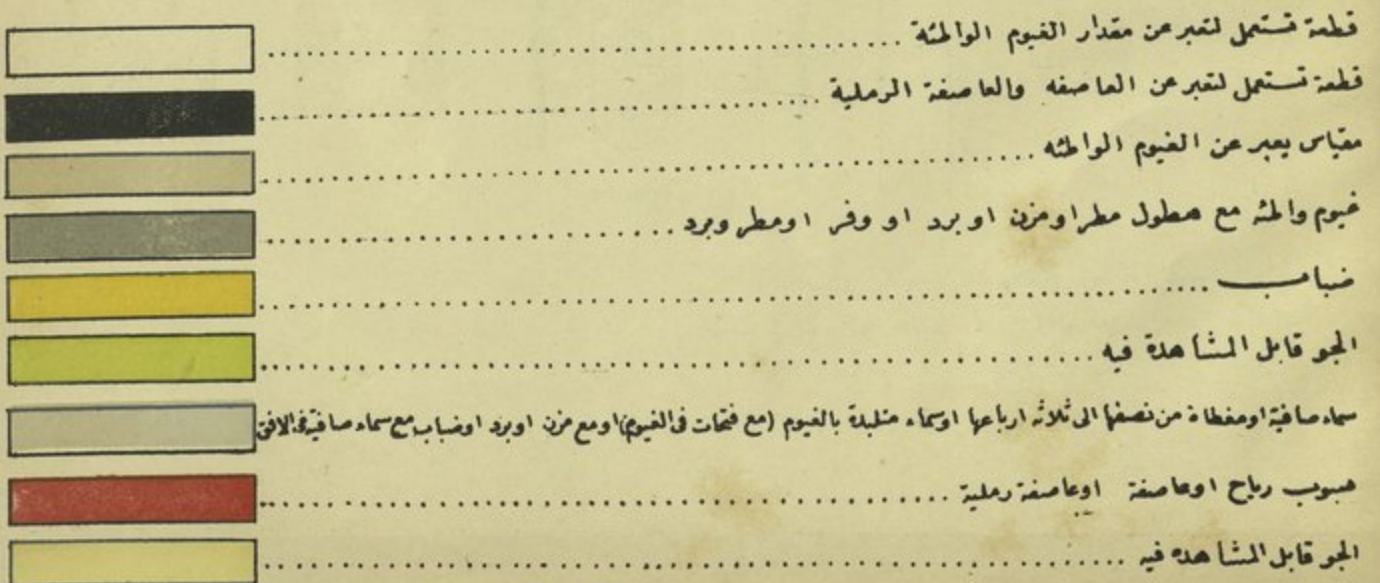 قطعة تستعمل لتعبر عن مقدار الغيوم الواطئة
قطعة تستعمل لتعبر عن العاصفه والعاصفة الرملية
مقياس يعبر عن الغيوم الواطئه
غيوم واطئه مع هطول مطر او مزن او برد او وفر او مطر وبرد
ضباب
الجو قابل المشاهدة فيه
سماء صافية او مغطاة من نصفها الى ثلاثه ارباعها اوسماء متلبدة بالغيوم (مع فتحات فى الغيوم) او مع مزن او برد او ضباب مع سماء صافية فى الافق
هبوب رياح اوعاصفة اوعاصفة رملية
الجو قابل المشاهده فيه